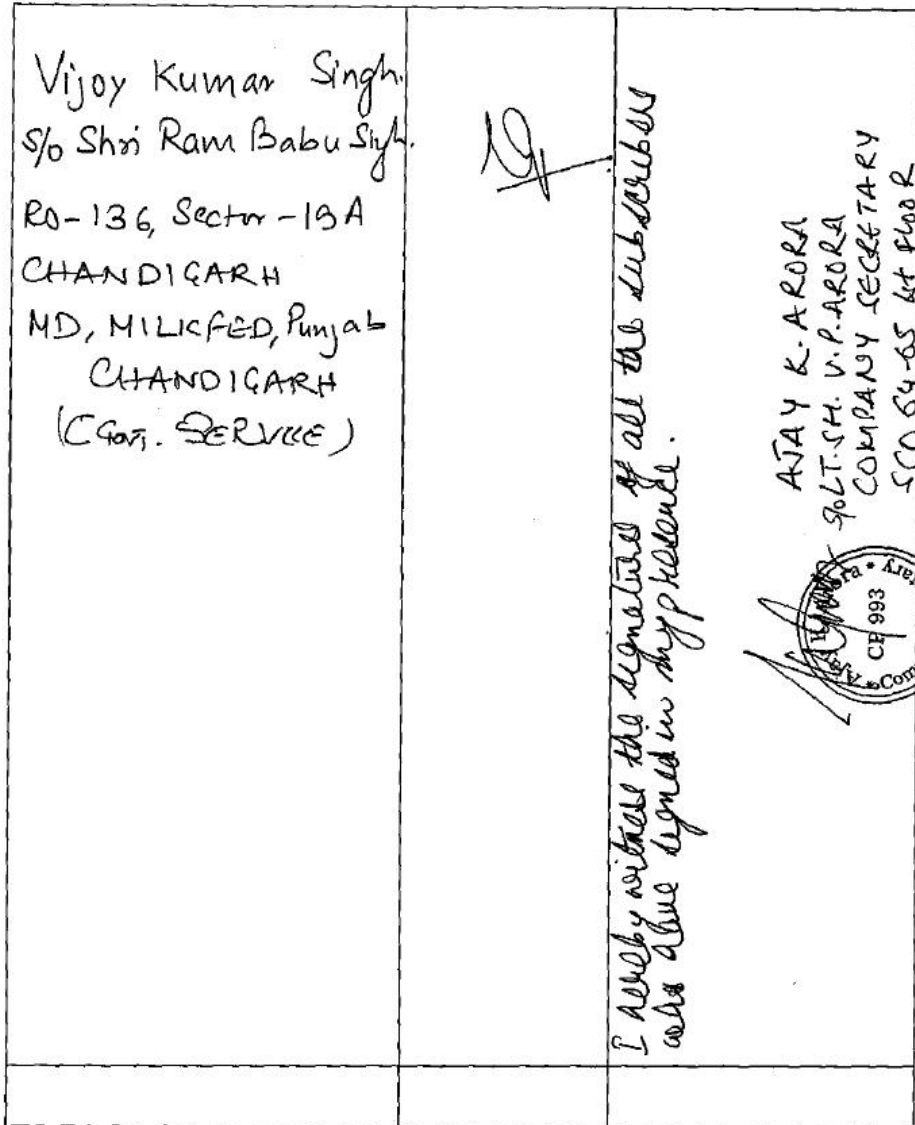 Vijoy Kumar Singh.
S/o Shri Ram Babu Singh.
RO-136, Sector-19A
CHANDIGARH
MD, MILKFED, Punjab
CHANDIGARH
(Govt. SERVICE)
I hereby witness the signatures of all the subscribers
who have signed in my presence.
AJAY K. ARORA
S/o LT. SH. V.P. ARORA
COMPANY SECRETARY
SCO 64-65 1st FLOOR
CP 993